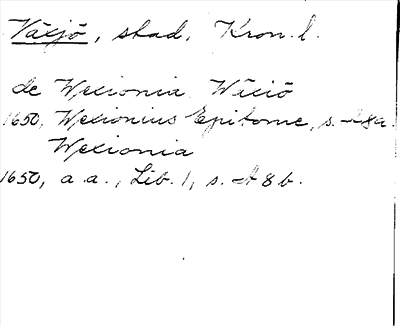 Växjö, stad, Kron. l.
de Wexionia Wexiö
1650, Wexionius Epitome, s. A8a.
Wexionia
1650, a a., Lib. 1, s. A 8 b.